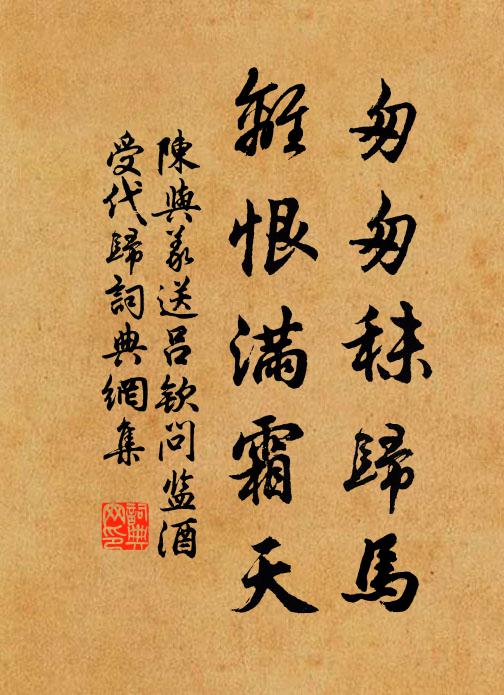 匆匆秣歸馬
離恨滿霜天
陳與義送呂欽問监酒
受代歸詞典網集
詞典
网印